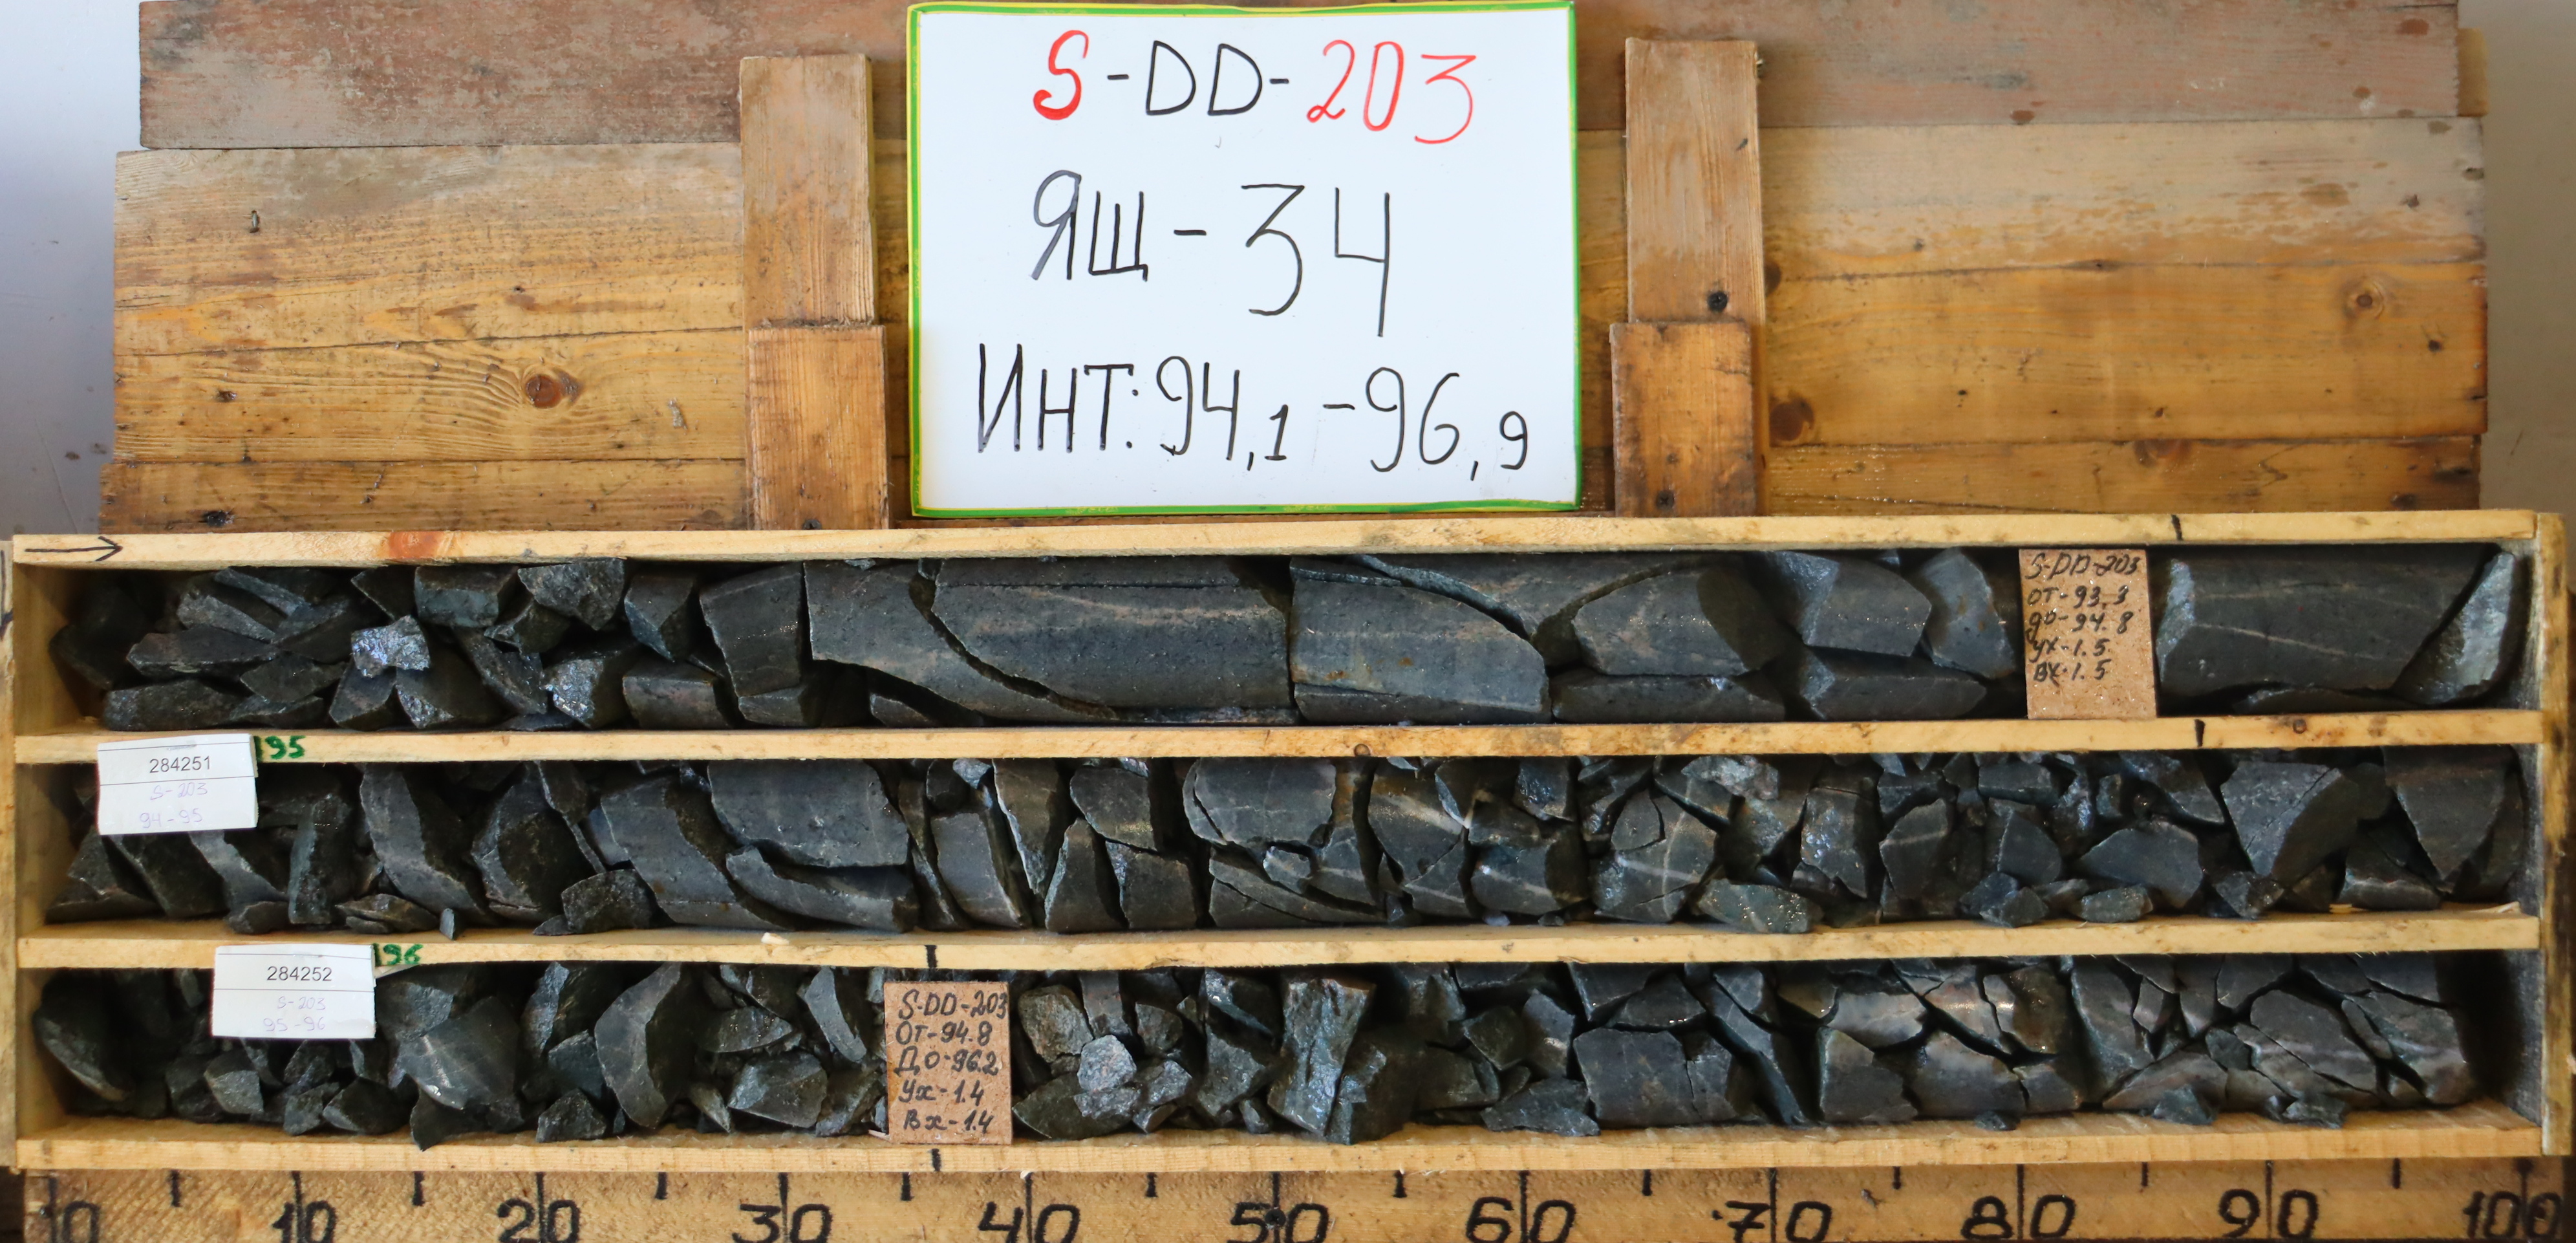 S-DD-203
ЯЩ-34
ИНТ: 94,1-96,9
S-DD-203
от-93.3
до-94.8
ух-1.5
вх-1.5
195
284251
S-203
94-95
196
284252
S-203
95-96
S-DD-203
От-94.8
До-96.2
Ух-1.4
Вх-1.4
0 10 20 30 40 50 60 70 80 90 100